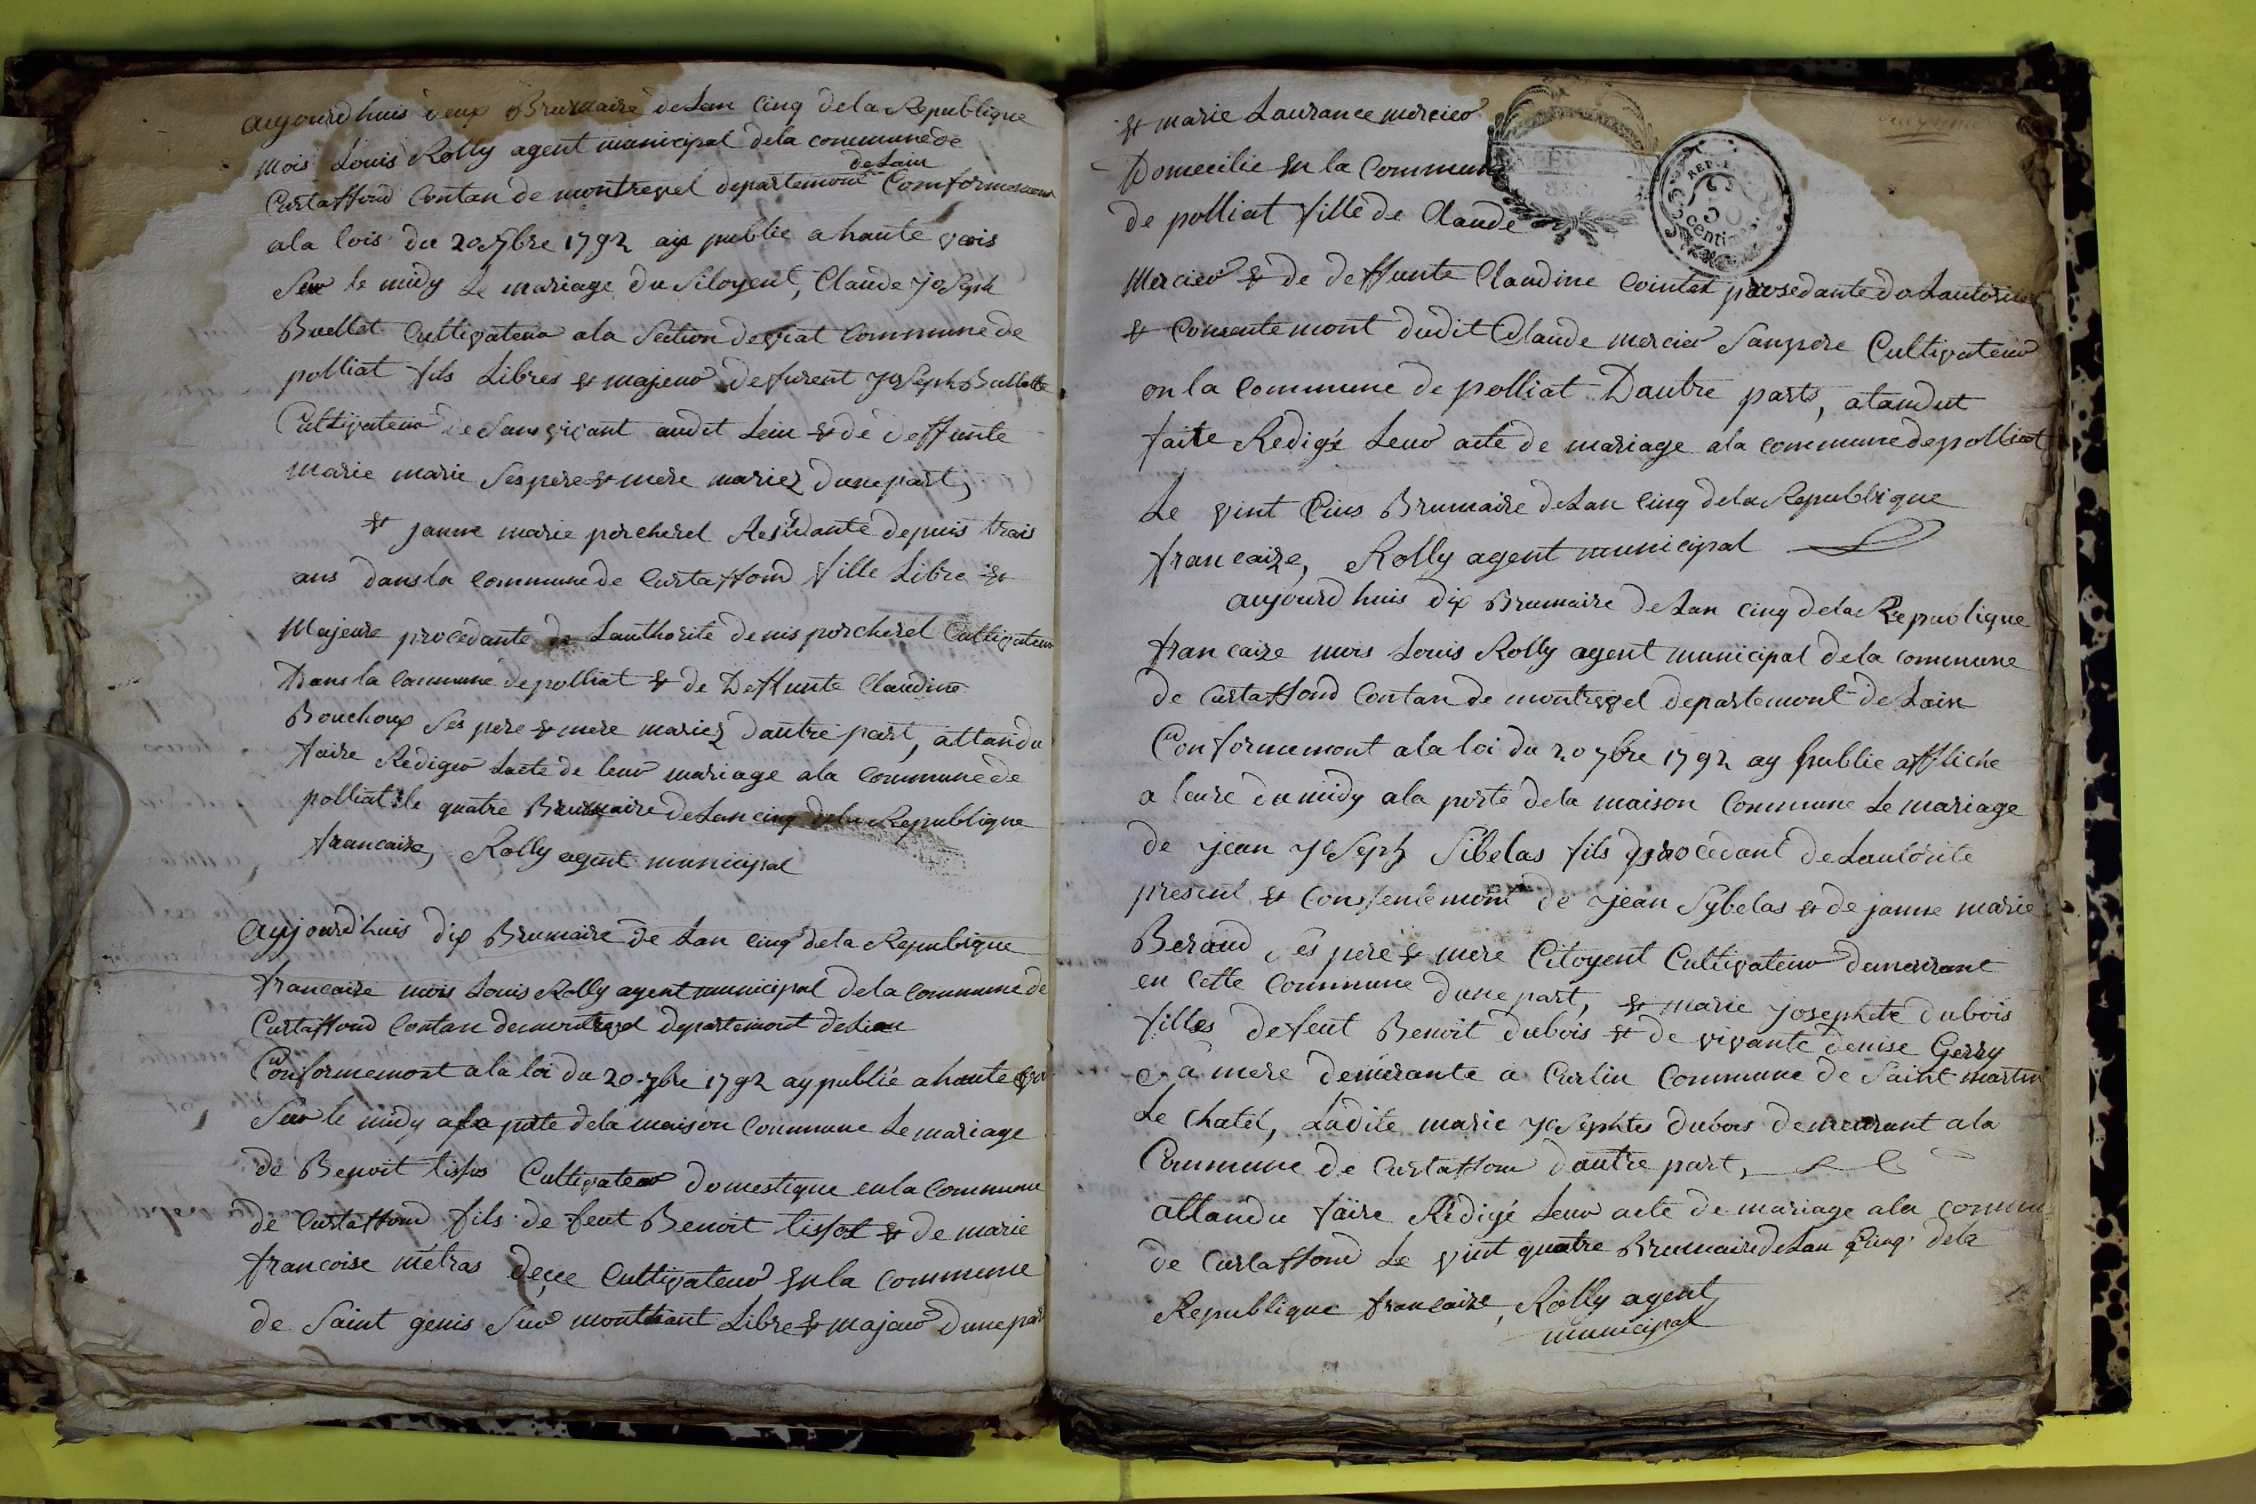 aujourdhuis deux Brumaire de Lan Cinq de la Republique
mois Louis Rolly agent municipal dela commune de
Curtaffond Contan de montrevel departement de Lain Comformement
ala lois du 20 7bre 1792 aÿ publie a haute vois
Sur le midy Le mariage Du Sitoyent, Claude Joseph
Buellet Cultivateur ala Section de viat Commune de
polliat fils Libres & majeur defurent Joseph Bullette
Cultivateur de Sanvivant audit Leiu & de deffunte
marie marie Ses pere & mere mariez dunepart,
& janne marie porcherel Residante depuis trais
ans dans la Commune de Curtaffond fille Libre &
Majeure procedante de Lauthorite denis porcherel Cultivateur
Dans la Commune de polliat & de Deffunte Claudine
Bouchoux Ses pere & mere mariez dautre part, attandu
faire Rediger Lacte de leur mariage ala Commune de
polliat le quatre Brumaire de Lan cinq dela Republique
francaire, Rolly agent municipal
aujourd'huis dix Brumaire de Lan Cinq dela Repubique
francaize mois Louis Rolly agent municipal dela Commune de
Curtaffond Contan demontrevel departemont deLian
Conformemont ala loi du 20 7bre 1792 ay publié a haute
Sur le midy a la porte dela maison Commune Le mariage
de Benoit tissos Cultivateur domestique enla Commune
de Curtaffond fils de feut Benoit tissot & de marie
francoise metras Cultivateur en la Commune
de Saint genis Sur monthiant Libre & majeur Dune par
& marie Laurance mercier
Domecilie en la Commun
de polliat fille de Claude
REP. F
50
Centimes
Mercier & de deffunte Claudine Cointet prosedante de Lautorite
& Consentemont dudit Claude mercier Sanpere Cultivateur
en la Commune de polliat Dautre parts, atandut
faite Redigé Leur acte de mariage ala commune de polliat
Le vint Cius Brumaire de Lan Cinq dela Republique
francaize, Rolly agent municipal
aujourdhuis dix Brumaire de Lan cinq dela Republique
francaize mois Louis Rolly agent municipal dela commune
de Curtaffond Contan de montrevel departemont de Lain
Conformemont ala loi du 20 7bre 1792 ay publie affliché
a leure du midy ala porte dela maison Commune Le mariage
de jean Joseph Sibelas fils procedant de Lautorite
present & Consentemont de jean Sybelas & de janne marie
Beraud Ses pere & mere Citoyent Cultivateur demeurant
en Cette Commune dune part, & marie josephete dubois
filles de feut Benoit dubois & de vivante denise Gerry
Sa mere demerante a Curlin Commune de Saint martin
Le Chatél, Ladite marie Josephtes dubois demeurant ala
Commune de Curtaffon dautre part,
attandu faire Rédigé Leur acte de mariage ala commu
de Curtaffond Le vint quatre Brumaire de Lan Cinq dela
Republique francaize, Rolly agent
municipal